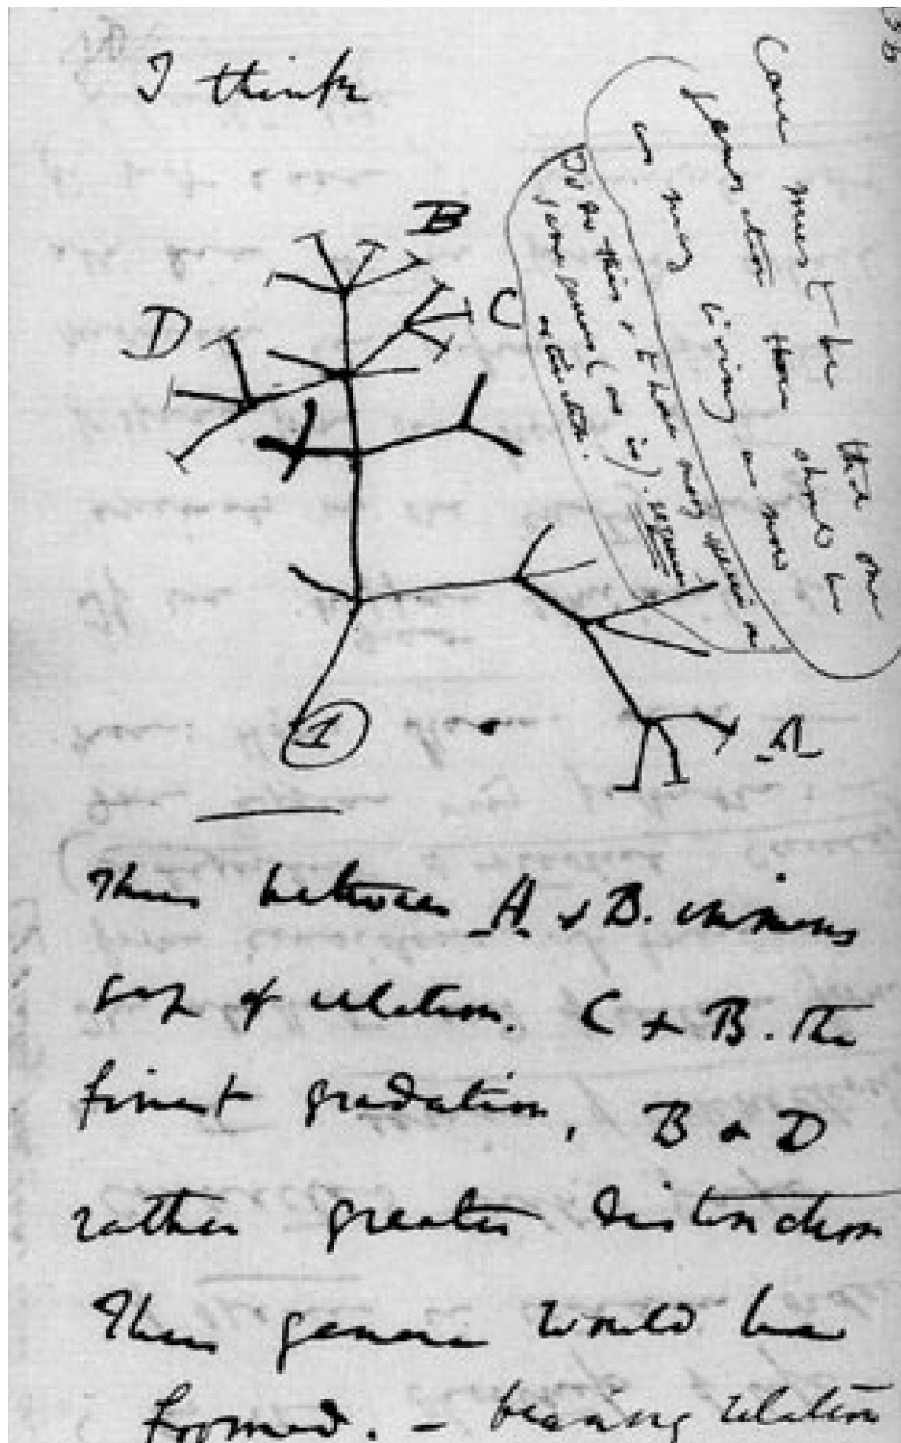 I think
36
Case must be that one
generation then should be
as many living as now
To do this & to have many species in
same genus (as is). requires
extinction.
B
D
C
1
A
Thus between A & B. immens
gap of relation. C & B. The
finest gradation, B & D
rather greater distinction
Thus genera would be
formed. — bearing relation